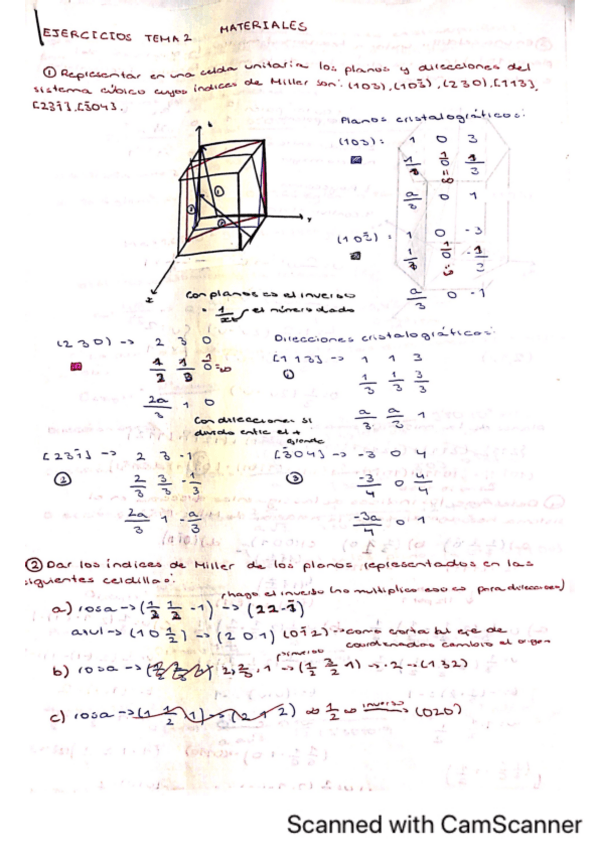 EJERCICIOS TEMA 2 MATERIALES
① Representar en una celda unitaria los planos y direcciones del
sistema cúbico cuyos índices de Miller son: (103), (103̄), (230), [113],
[231̄], [3̄04].
Planos cristalográficos:
(103): 1 0 3
a/3 0 1
(103̄) = 1 0 -3
a/3 0 -1
Con planos es el inverso
el número dado
(230) -> 2 3 0
1/2 1/3 1/0 = ∞
2a/3 1 0
Direcciones cristalográficas:
[113] -> 1 1 3
①
1/3 1/3 3/3
a/3 a/3 1
Con direcciones si
divido entre el +
grande
[231̄] -> 2 3 -1
②
2/3 3/3 -1/3
2a/3 1 -a/3
[3̄04] -> -3 0 4
③
-3/4 0 4/4
-3a/4 0 1
② Dar los índices de Miller de los planos representados en las
siguientes celdillas:
hago el inverso (no multiplico eso es para direcciones)
a) rosa -> (1/2 1/2 -1) -> (22-1̄)
azul -> (1 0 1/2) -> (201) (01̄2) -> como corta al eje de
coordenadas cambio el origen
inverso
b) rosa -> 2, 2/3, 1 -> (1/2 3/2 1) -> ·2 -> (132)
c) rosa -> (1 1/2 1) -> (2 1 2) ∞ 1/2 ∞ inverso -> (020)
Scanned with CamScanner